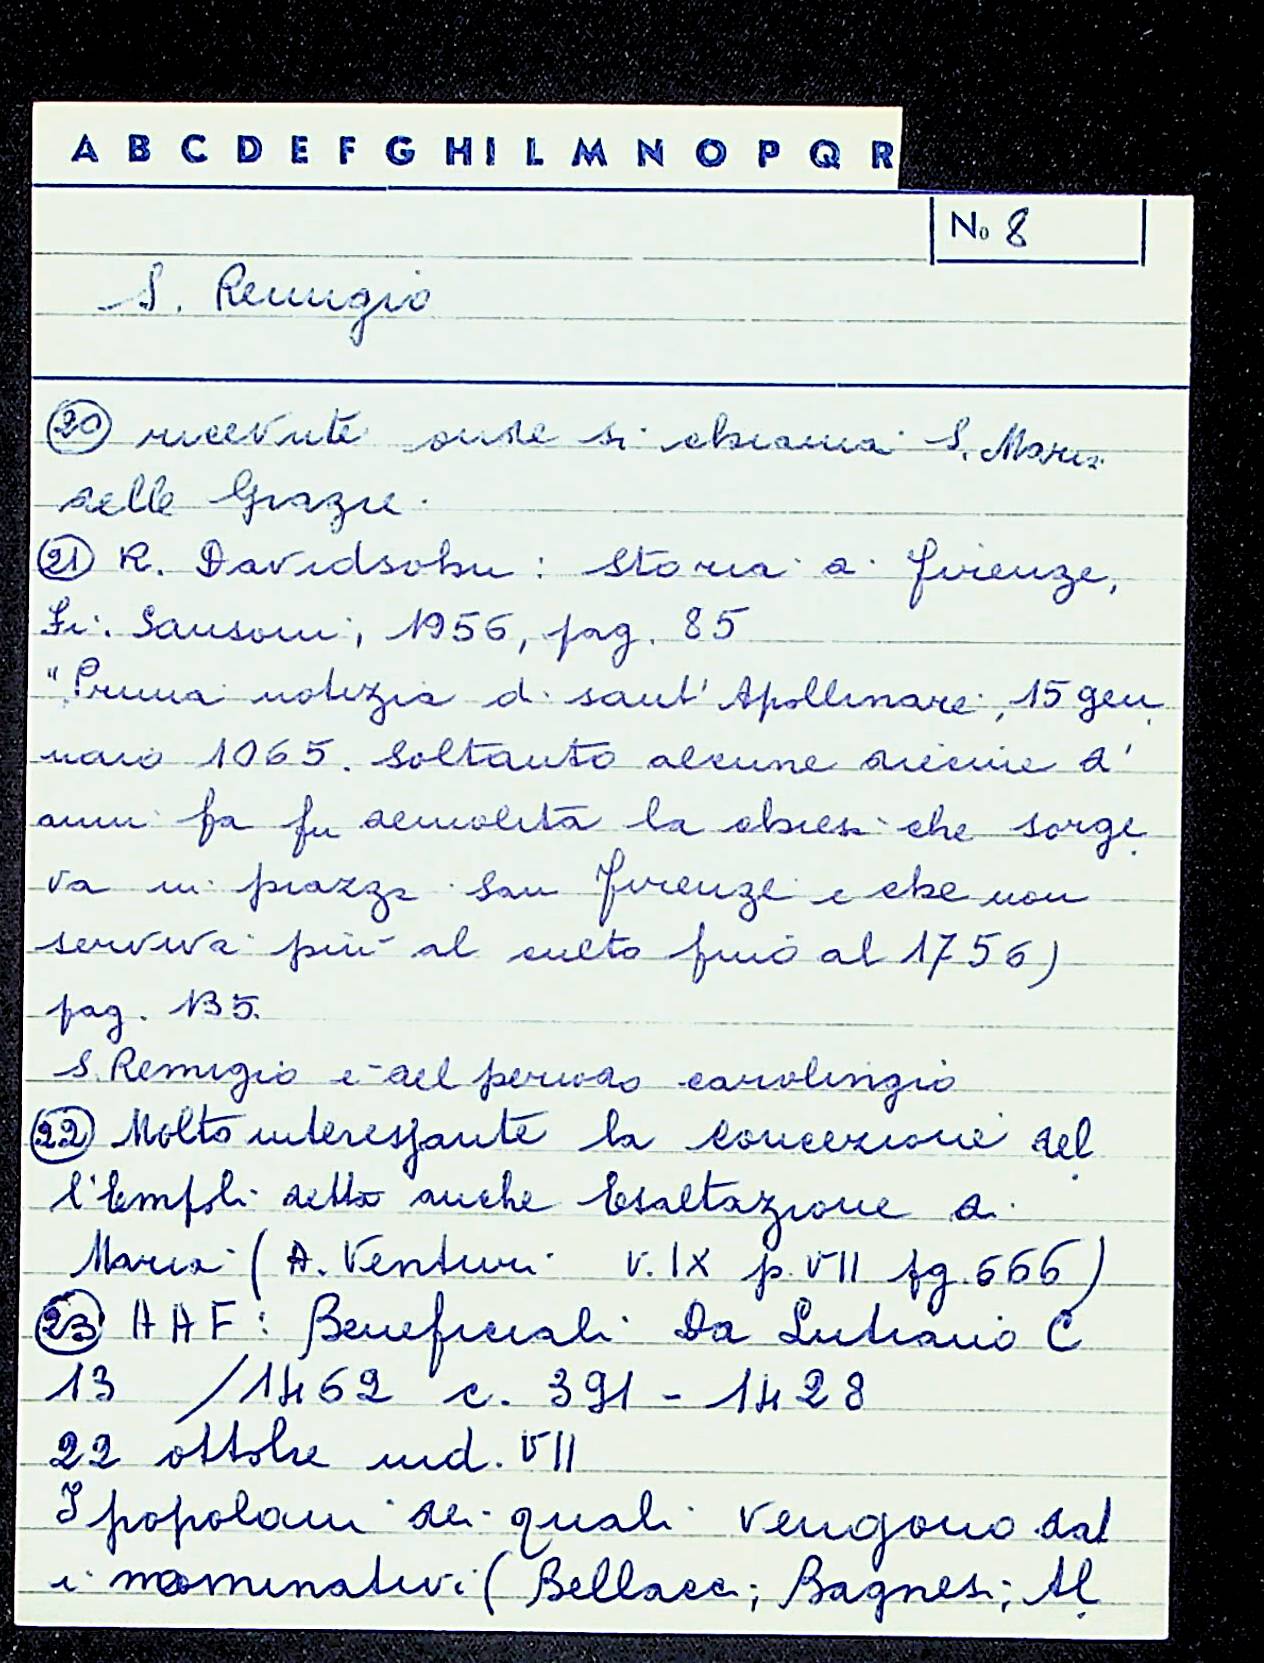 A B C D E F G H I L M N O P Q R
No 8
S. Remigio
20 ricevute onde si chiama S. Maria
delle Grazie.
21 R. Davidsohn: Storia di Firenze,
Fi. Sansoni, 1956, pag. 85
"Prima notizia di sant'Apollinare, 15 gen
naio 1065. Soltanto alcune diecine d'
anni fa fu demolita la chiesa che sorge
va in piazza San Firenze e che non
serviva più al culto fino al 1756)
pag. 135.
S. Remigio è del periodo carolingio
22 Molto interessante la concezione del
l'Empoli detta anche Esaltazione di
Maria (A. Venturi V. IX p. VII fg. 666)
23 AAF: Beneficiali Da Lutiano C
13 /1462 c. 391 - 1428
22 ottobre ind. VII
I popolani dei quali vengono dat
i nominativi (Bellacci; Bagnesi; Al